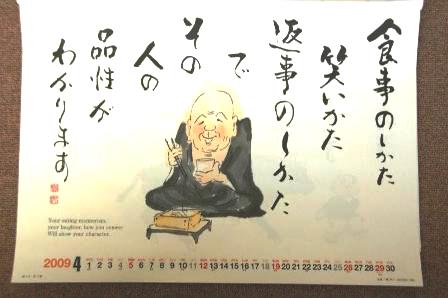 食事のしかた
笑いかた
返事のしかた
で
その
人の
品性が
わかります
Your eating mannerism,
your laughter, how you answer
Will show your character.
2009 4
1 2 3 4 5 6 7 8 9 10 11 12 13 14 15 16 17 18 19 20 21 22 23 24 25 26 27 28 29 30